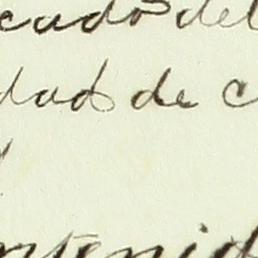 cado del
dad de c
ntenid